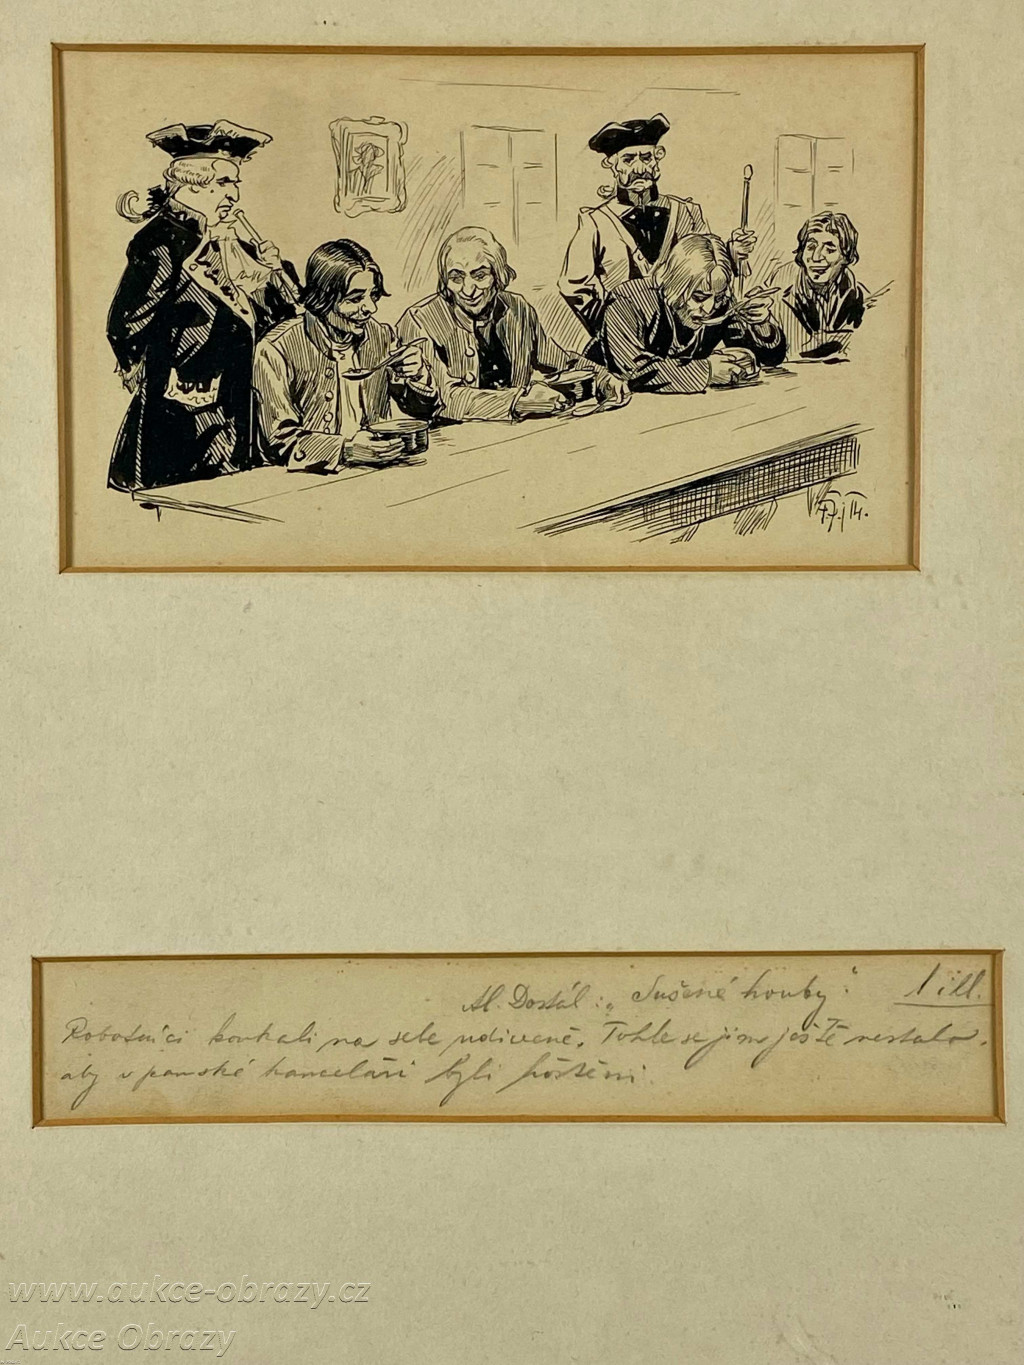 Al. Dostál: „Sušené houby“. 1 ill.
Robotníci koukali na sebe udiveně. Tohle se jim ještě nestalo,
aby v panské kanceláři byli hoštěni.
www.aukce-obrazy.cz
Aukce Obrazy